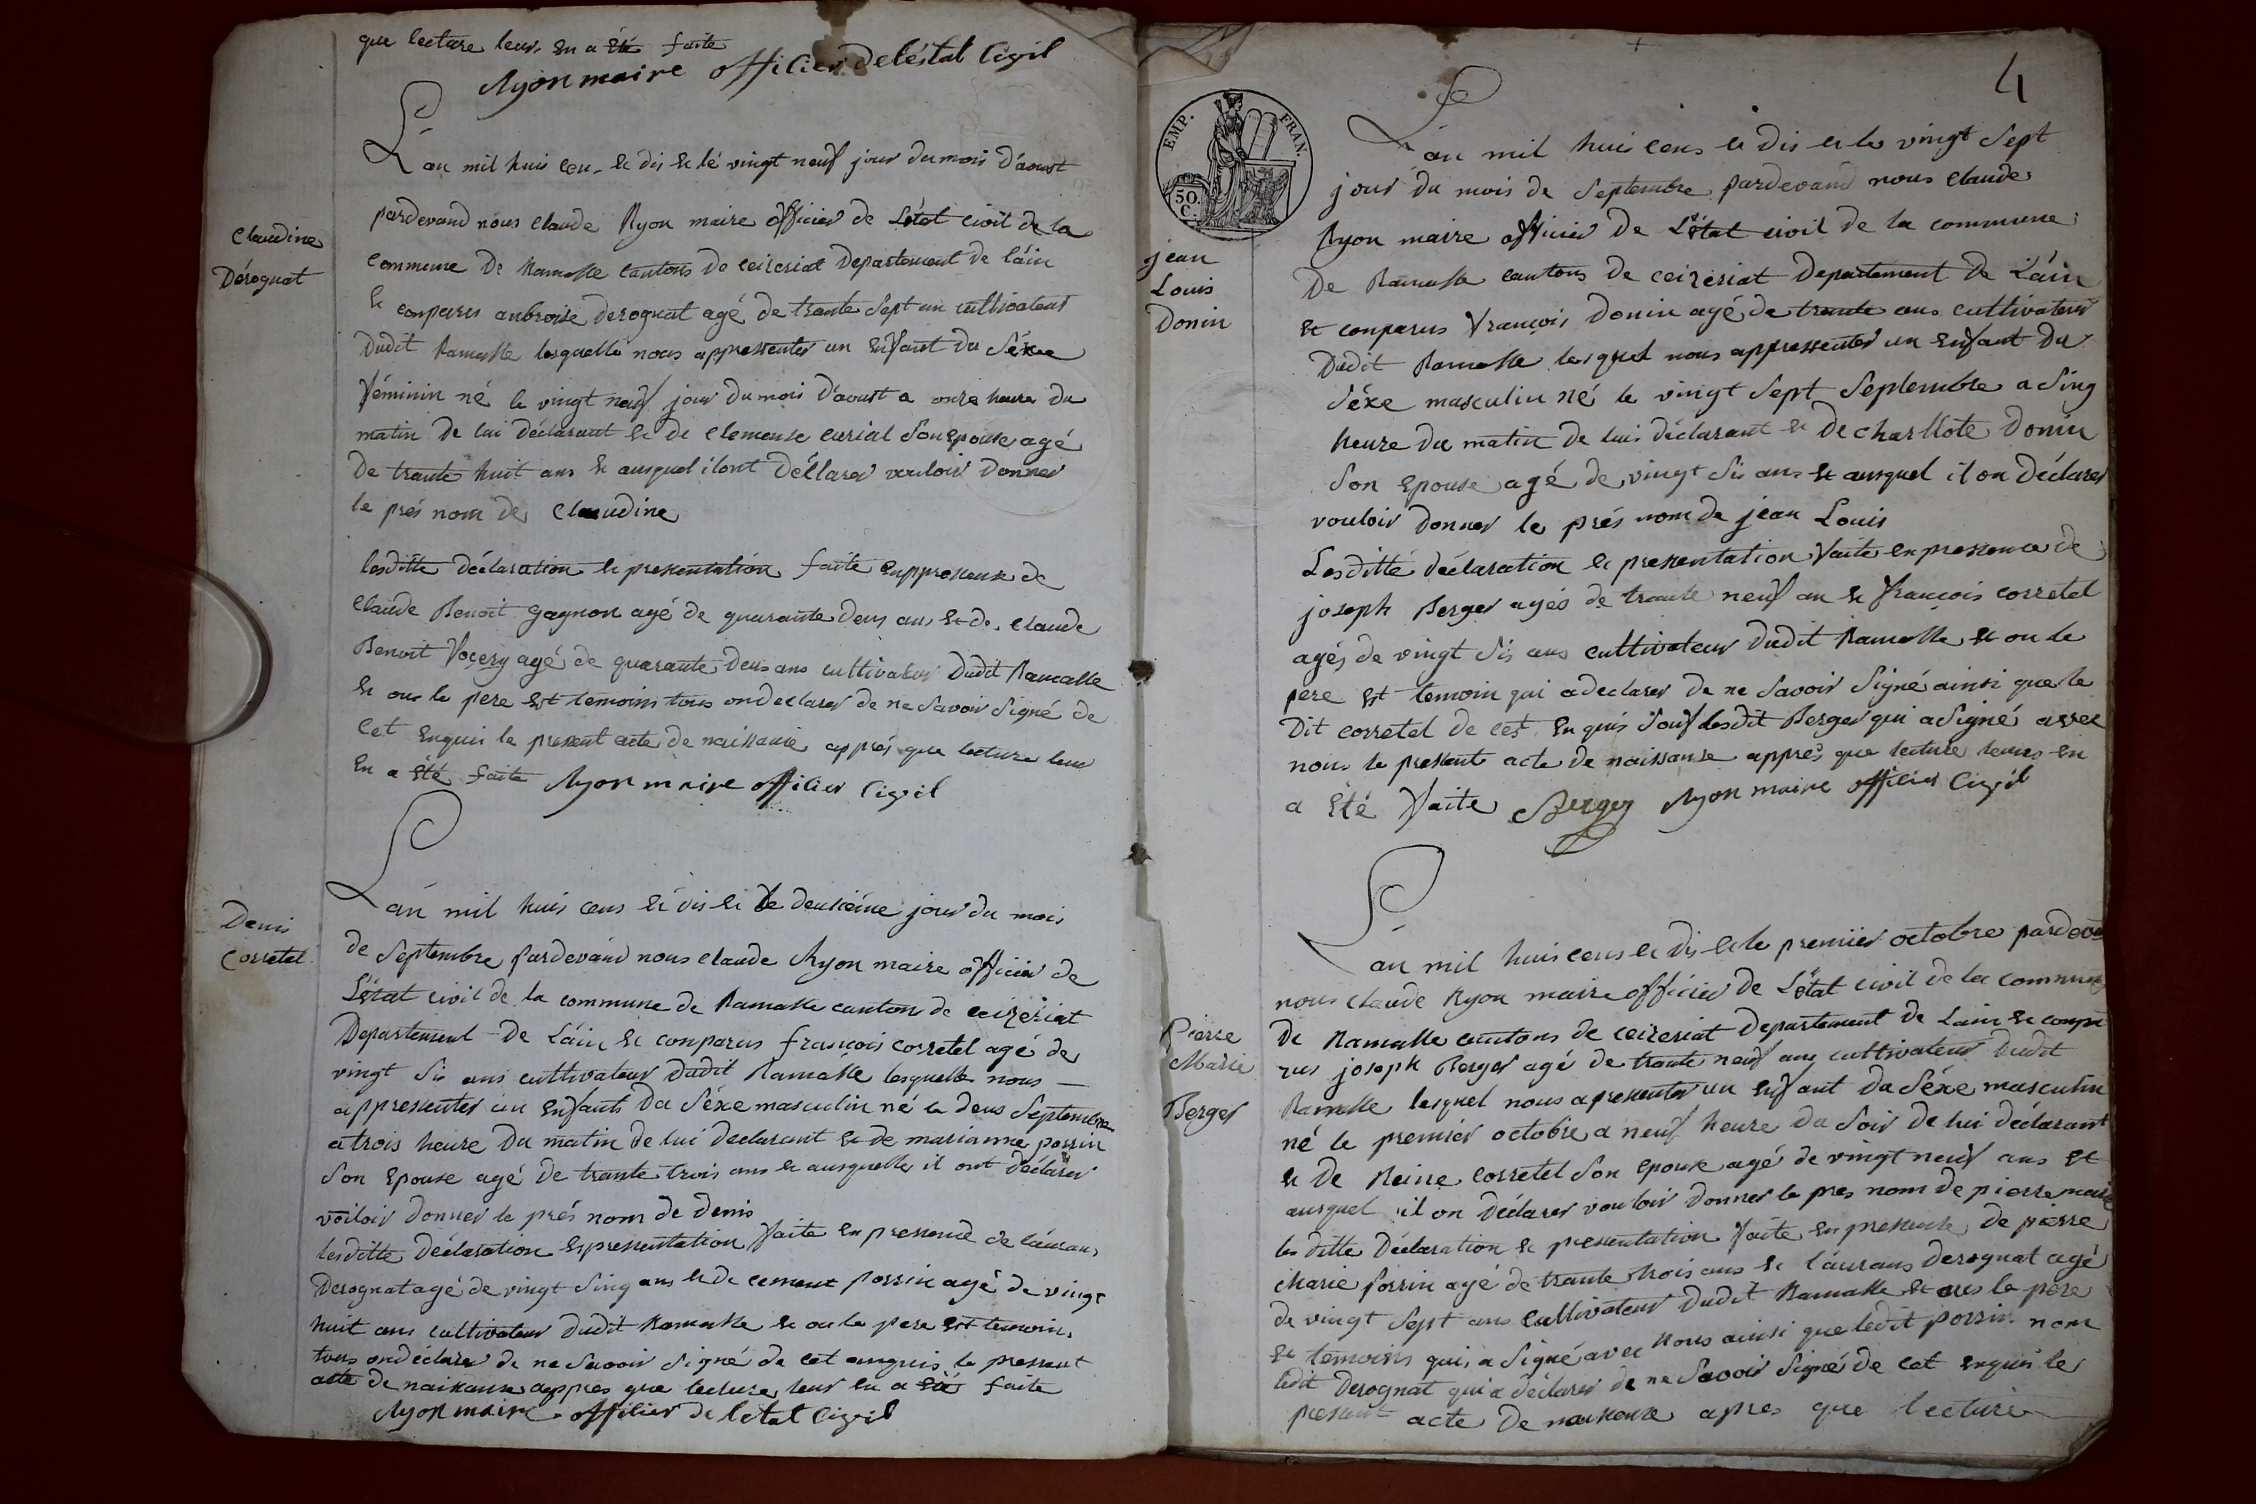 que lecture leur en a été faite
Ryon maire officier de léstat Civil
Claudine
Dérognat
L'an mil huis cens et dis et lé vingt neuf jour du mois D'aoust
pardevand nous claude Ryon maire officier de L'état civil de la
commune De Ramasse cantons de ceizeriat Departement de l'áin
et conparus anbroise derognat agé de trante Sept an cultivateur
Dudit Ramasse lesquelle nous appressenter un enfant du Séxe
féminin né le vingt neuf jour du mois D'aoust a onze heure du
matin de lui déclarant et de clemense curial Son epouse agé
De trante huit ans et ausquel il ont Décllarer vouloir Donner
le prés nom de claudine
lesditte déclaration et pressentation faite enppressense de
Claude Benoit gagnon agé de quarante deus ans et de claude
Benoit Vocery agé de quarante deus ans cultivateur dudit Ramasse
et ou le pere est temoins tous on declarer de ne Savoir Signé de
Cet enquis le present acte de naissanse apprés que lecture leur
en a été faite Ryon maire officier Civil
Denis
Corretel
L'an mil huis cens et dis et le deusiéme jour du mois
de Septembre pardevánd nous claude Ryon maire officier de
L'état civil de la commune de Ramasse canton de ceizériat
Departement De L'áin et conparus françois corretel agé de
vingt Sis ans cultivateur dudit Ramasse lesquelle nous
appressenter un enfants Du Séxe masculin né le deus Septembre
a trois heure du matin de lui declarant et de marianne perrin
Son epouse agé De trante trois ans et ausquelle il ont déclarer
vouloir donner le prés nom de denis
lesditte déclaration et pressentation faite en pressence de láurans
Derognat agé de vingt Sinq ans et de cement perrin agé de vingt
huit ans cultivateur dudit Ramasse et ou le pere est temoins
tous on déclarer de ne Savoir Signé de cet anquis le pressent
acte de naissanse appres que lecture leur en a été faite
Ryon maire officier de letat Civil
4
EMP. FRAN.
50. C.
jean
Louis
Donin
L'an mil huis cens et dis et le vingt Sept
jour du mois de Septembre pardevand nous claude
Ryon maire officier De L'état civil de la commune
De Ramasse cantons de ceizériat Departement de L'áin
et conparus françois Donin agé de trante ans cultivateur
Dudit Ramasse lesquel nous appressenter un enfant du
Séxe masculin né le vingt Sept Septembre a Sinq
heure du matin de lui déclarant et De charllote Donin
Son epouse agé de vingt Sis ans et ausquel il on Déclarer
vouloir Donner le prés nom de jean Louis
Lesditté déclaration et pressentation faite en pressence de
joseph Berger agés de trante neuf an et françois corretel
agés de vingt Sis ans cultivateur Dudit Ramasse et ou le
pere est temoin qui a declarer de ne Savoir Signé ainsi que le
Dit corretel de cet enquis Souf lesdit Berger qui a Signé avec
nous le pressent acte de naissanse apprés que lecture leurs en
a été faite Berger Ryon maire officier Civil
Pierre
Marie
Berger
L'an mil huis cens et dis et le premiier octobre pardevan
nous claude Ryon maire officier de L'état civil de la commune
De Ramasse cantons de ceizeriat Departement de Lain et conpa
rus joseph Berger agé de trante neuf ans cultivateur Dudit
Ramasse lesquel nous apressenter un enfant du Séxe masculin
né le premier octobre a neuf heure du Soir de lui déclarant
et de Reine corretel Son epouse agé de vingt neuf ans et
ausquel il on Déclarer vouloir donner le pres nom de pierre marie
les ditte Déclaration et pressentation faite en pressense de pierre
Marie perrin agé de trante trois ans et láurans derognat agé
de vingt Sept ans cultivateur Dudit Ramasse et ou le pere
et temoins qui a Signé avec nous ainsi que ledit perrin nom
ledit Derognat qui a déclarer de ne Savoir Signé de cet enquis le
present acte De naissense apres que lecture